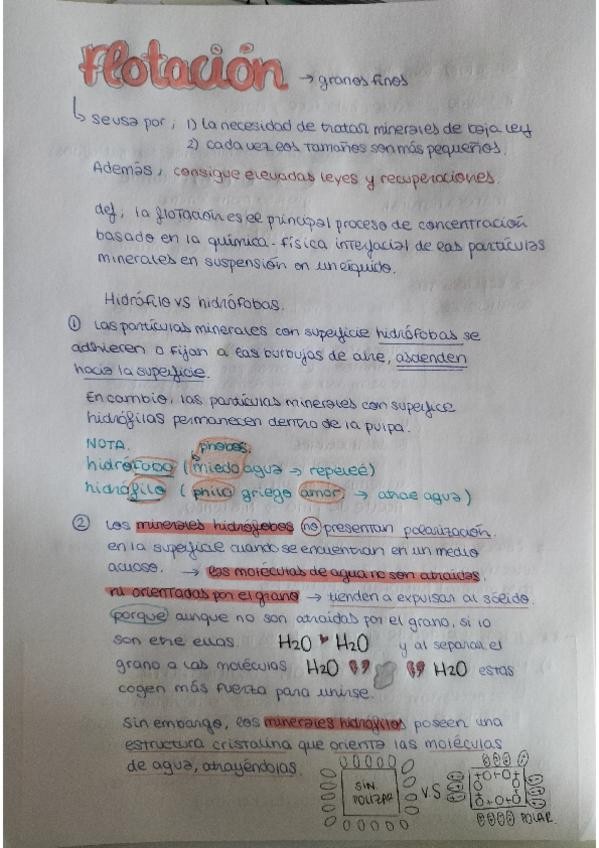 Flotación → granos finos
↳ se usa por; 1) la necesidad de tratar minerales de baja ley
2) cada vez los tamaños son más pequeños.
Además, consigue elevadas leyes y recuperaciones.
def; la flotación es el principal proceso de concentración
basado en la química-física interfacial de las partículas
minerales en suspensión en un líquido.
Hidrófilo vs hidrófobas.
① Las partículas minerales con superficie hidrófobas se
adhieren o fijan a las burbujas de aire, ascienden
hacia la superficie.
En cambio, las partículas minerales con superficie
hidrófilas permanecen dentro de la pulpa.
NOTA. phobos.
hidrófoba (miedo agua → repele)
hidrófilo (philo griego amor, → atrae agua)
② Los minerales hidrófobos no presentan polarización
en la superficie cuando se encuentran en un medio
acuoso. → las moléculas de agua no son atraídas
ni orientadas por el grano → tienden a expulsar al sólido.
porque aunque no son atraídas por el grano, si lo
son entre ellas. H2O ♥ H2O y al separar el
grano a las moléculas H2O H2O estas
cogen más fuerza para unirse.
Sin embargo, los minerales hidrófilos poseen una
estructura cristalina que orienta las moléculas
de agua, atrayéndolas.
SIN
POLIZAR
VS
POLAR.